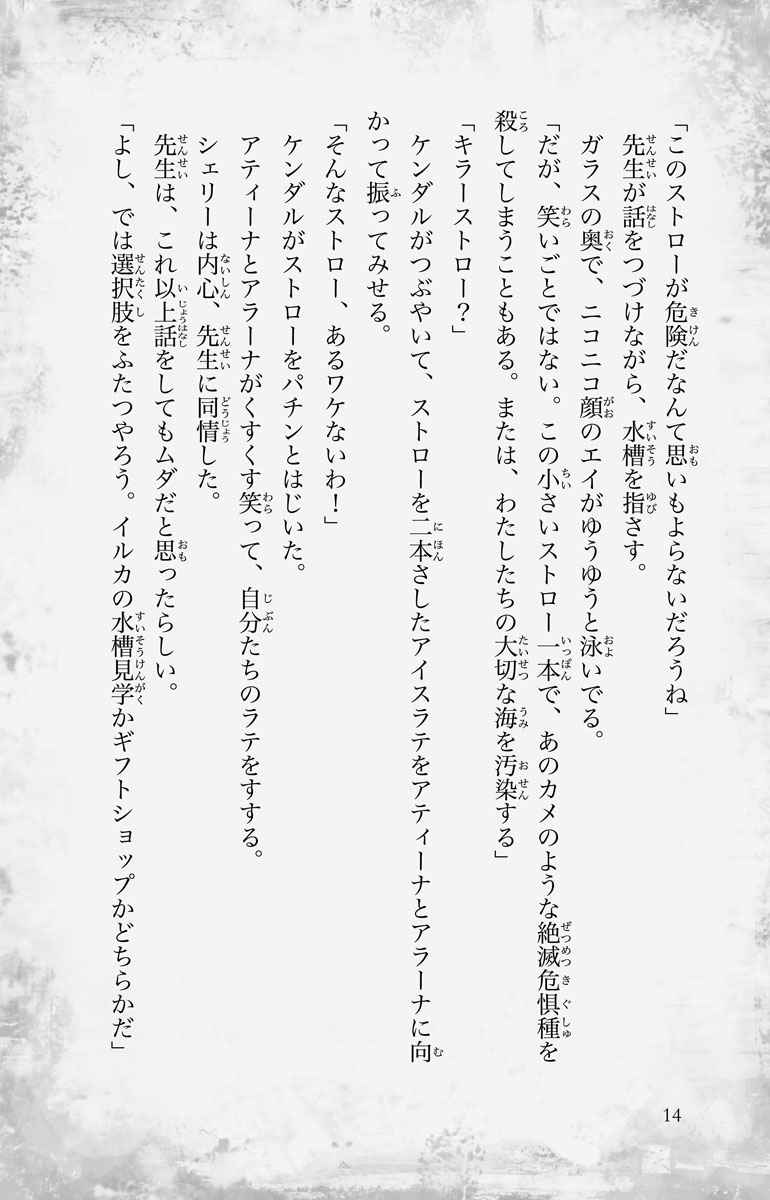 「このストローが危険だなんて思いもよらないだろうね」
先生が話をつづけながら、水槽を指さす。
ガラスの奥で、ニコニコ顔のエイがゆうゆうと泳いでる。
「だが、笑いごとではない。この小さいストロー一本で、あのカメのような絶滅危惧種を
殺してしまうこともある。または、わたしたちの大切な海を汚染する」
「キラーストロー？」
ケンダルがつぶやいて、ストローを二本さしたアイスラテをアティーナとアラーナに向
かって振ってみせる。
「そんなストロー、あるワケないわ！」
ケンダルがストローをパチンとはじいた。
アティーナとアラーナがくすくす笑って、自分たちのラテをすする。
シェリーは内心、先生に同情した。
先生は、これ以上話をしてもムダだと思ったらしい。
「よし、では選択肢をふたつやろう。イルカの水槽見学かギフトショップかどちらかだ」
14